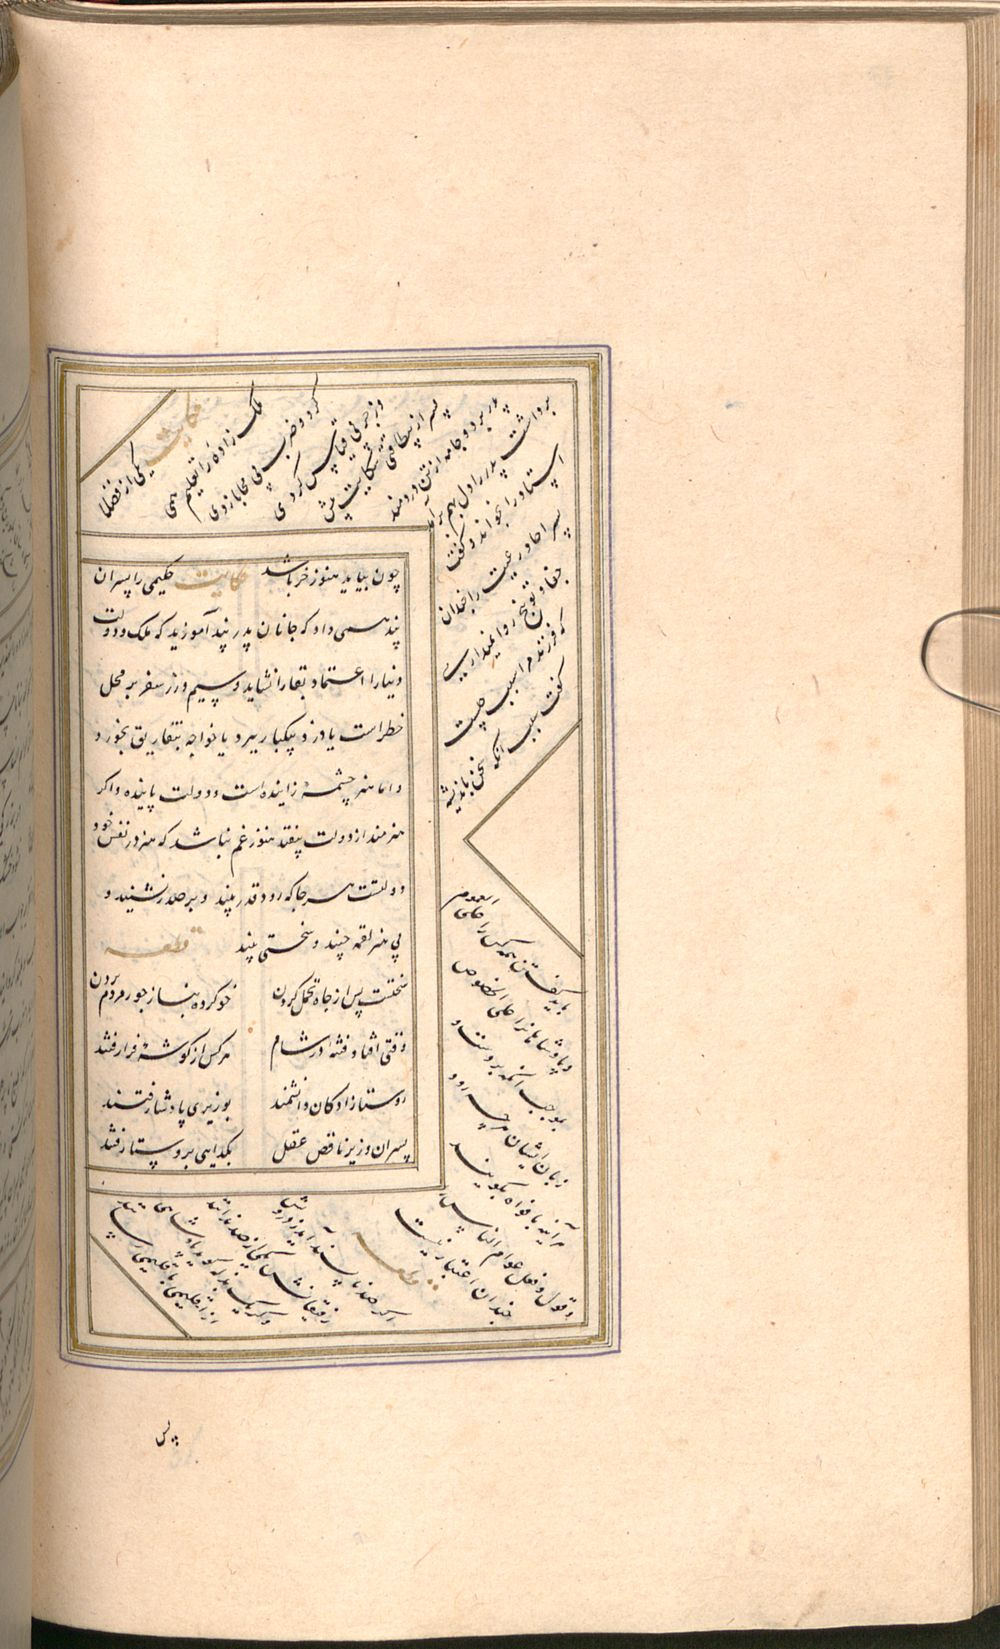 چون بیاید هنوز خر باشد حکایت حکیمی را پسران
پند همی داد که جانان پدر پند آموزید که ملک و دولت
دنیا را اعتماد بقا را نشاید و سیم و زر سفر بر محل
خطر است یا دزد بیکبار ببرد یا خواجه بتفاریق بخورد
و اما هنر چشمه زاینده است و دولت پاینده و اگر
هنرمند از دولت بیفتد هنوز غم نباشد که هنر در نفس خود
دولتست هر جا که رود قدر بیند و بر صدر نشیند و
بی هنر لقمه چیند و سختی بیند قطعه
سختست پس از جاه تحکم کردن خو کرده بناز جور مردم بردن
وقتی افتاد فتنه در شام هر کس از گوشه فرا رفتند
روستا زادگان دانشمند بوزیری پادشا رفتند
پسران وزیر ناقص عقل بگدایی بروستا رفتند
حکایت یکی از فضلا
ملک زاده را تعلیم همی
کرد و ضرب بی محابا زدی
و زجر بی قیاس کردی
پسر از بیطاقتی شکایت پیش
پدر برد و جامه از تن دردمند
برداشت پدر را دل بهم بر آمد
استاد را بخواند و گفت
پسر احاد رعیت را چندان
جفا و توبیخ روا نمیداری
که فرزند مرا سبب چیست
گفت سبب آنکه سخن باندیشه
باید گفتن همه کس را علی العموم
و پادشاهانرا علی الخصوص
بموجب آنکه بر دست و
زبان ایشان هر چه رود
هر آینه بافواه بگویند
و قول و فعل عوام الناس را
چندان اعتباری نیست
قطعه
اگر صد ناپسند آید ز درویش
رفیقانش یکی از صد ندانند
و گر یک بذله گوید پادشاهی
از اقلیمی باقلیمی رسانند
پس